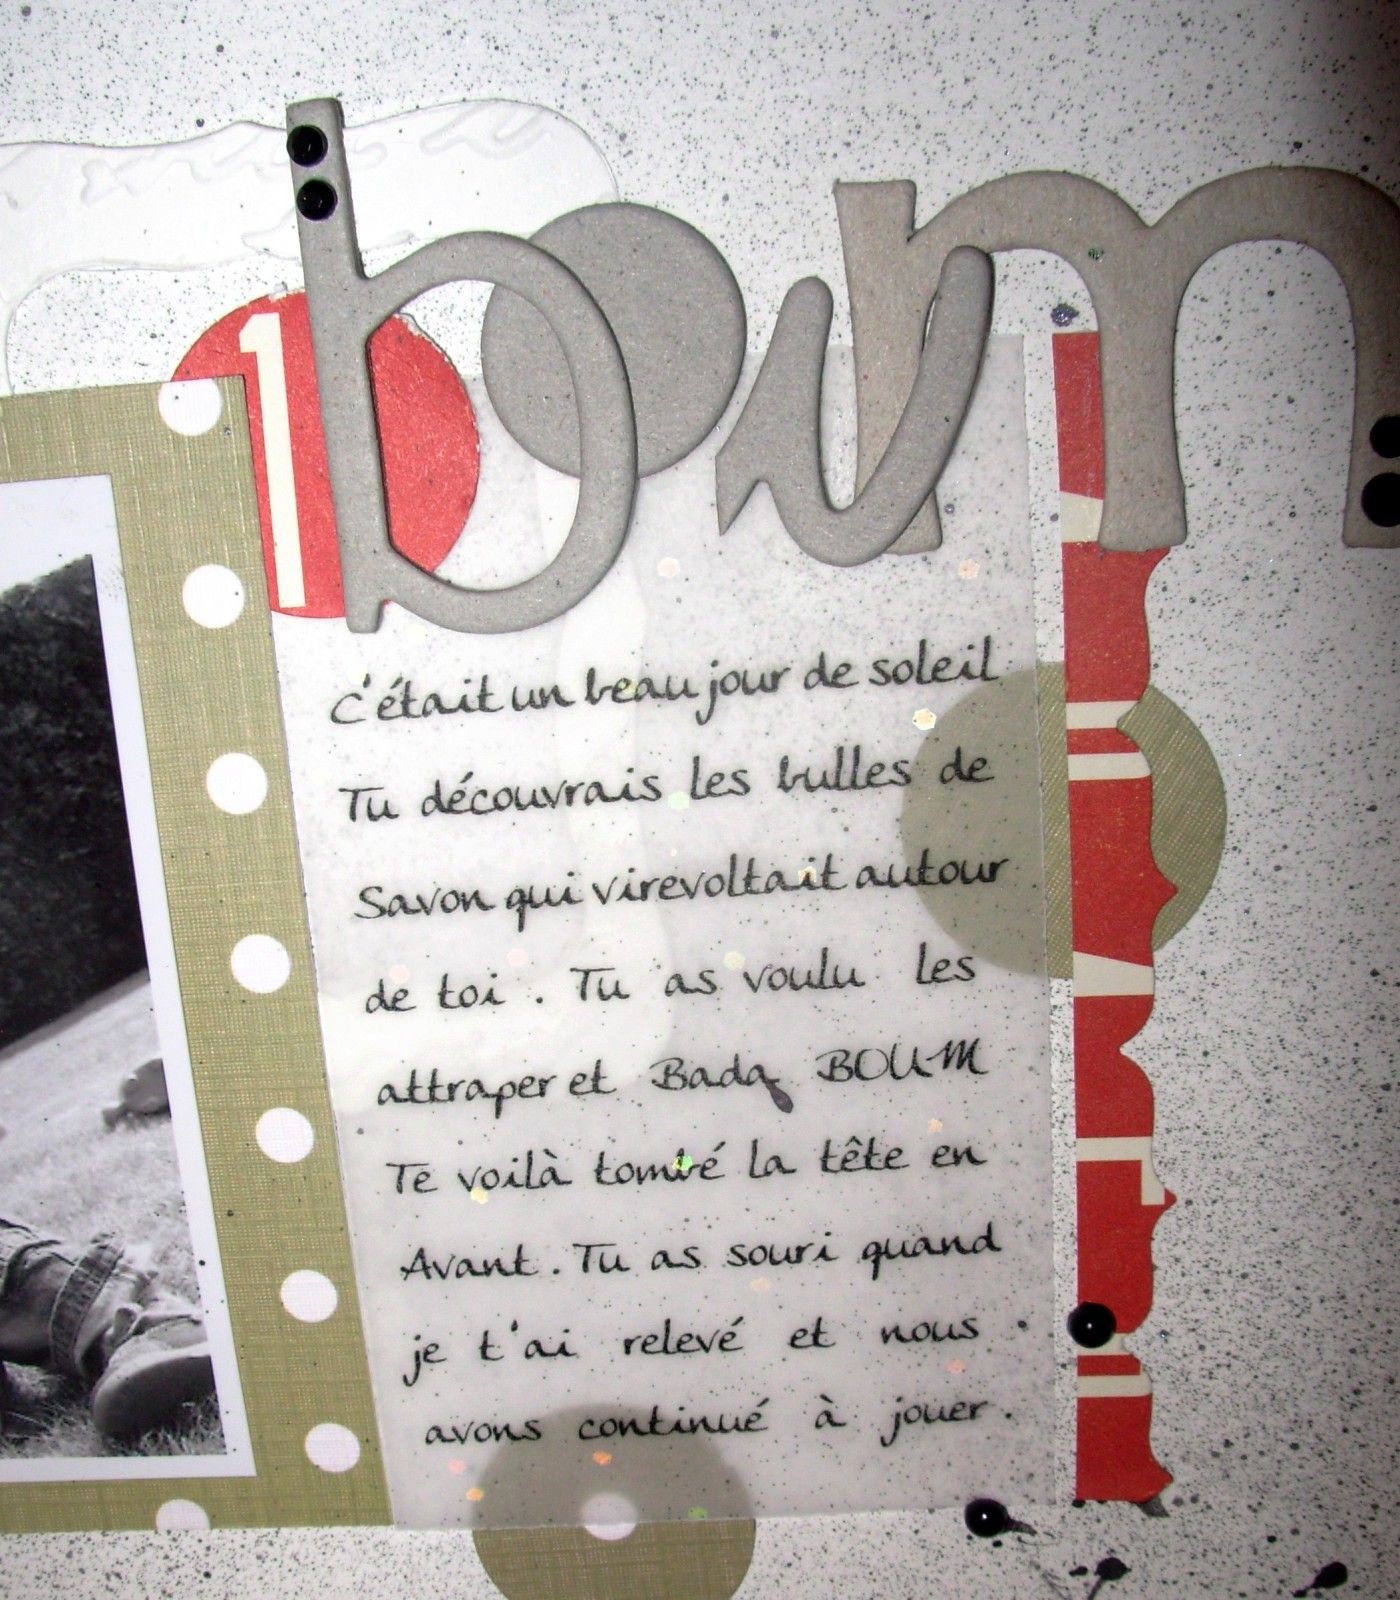 boum
1
C'était un beau jour de soleil
Tu découvrais les bulles de
Savon qui virevoltait autour
de toi . Tu as voulu les
attraper et Bada BOUM
Te voilà tombé la tête en
Avant . Tu as souri quand
je t'ai relevé et nous
avons continué à jouer .